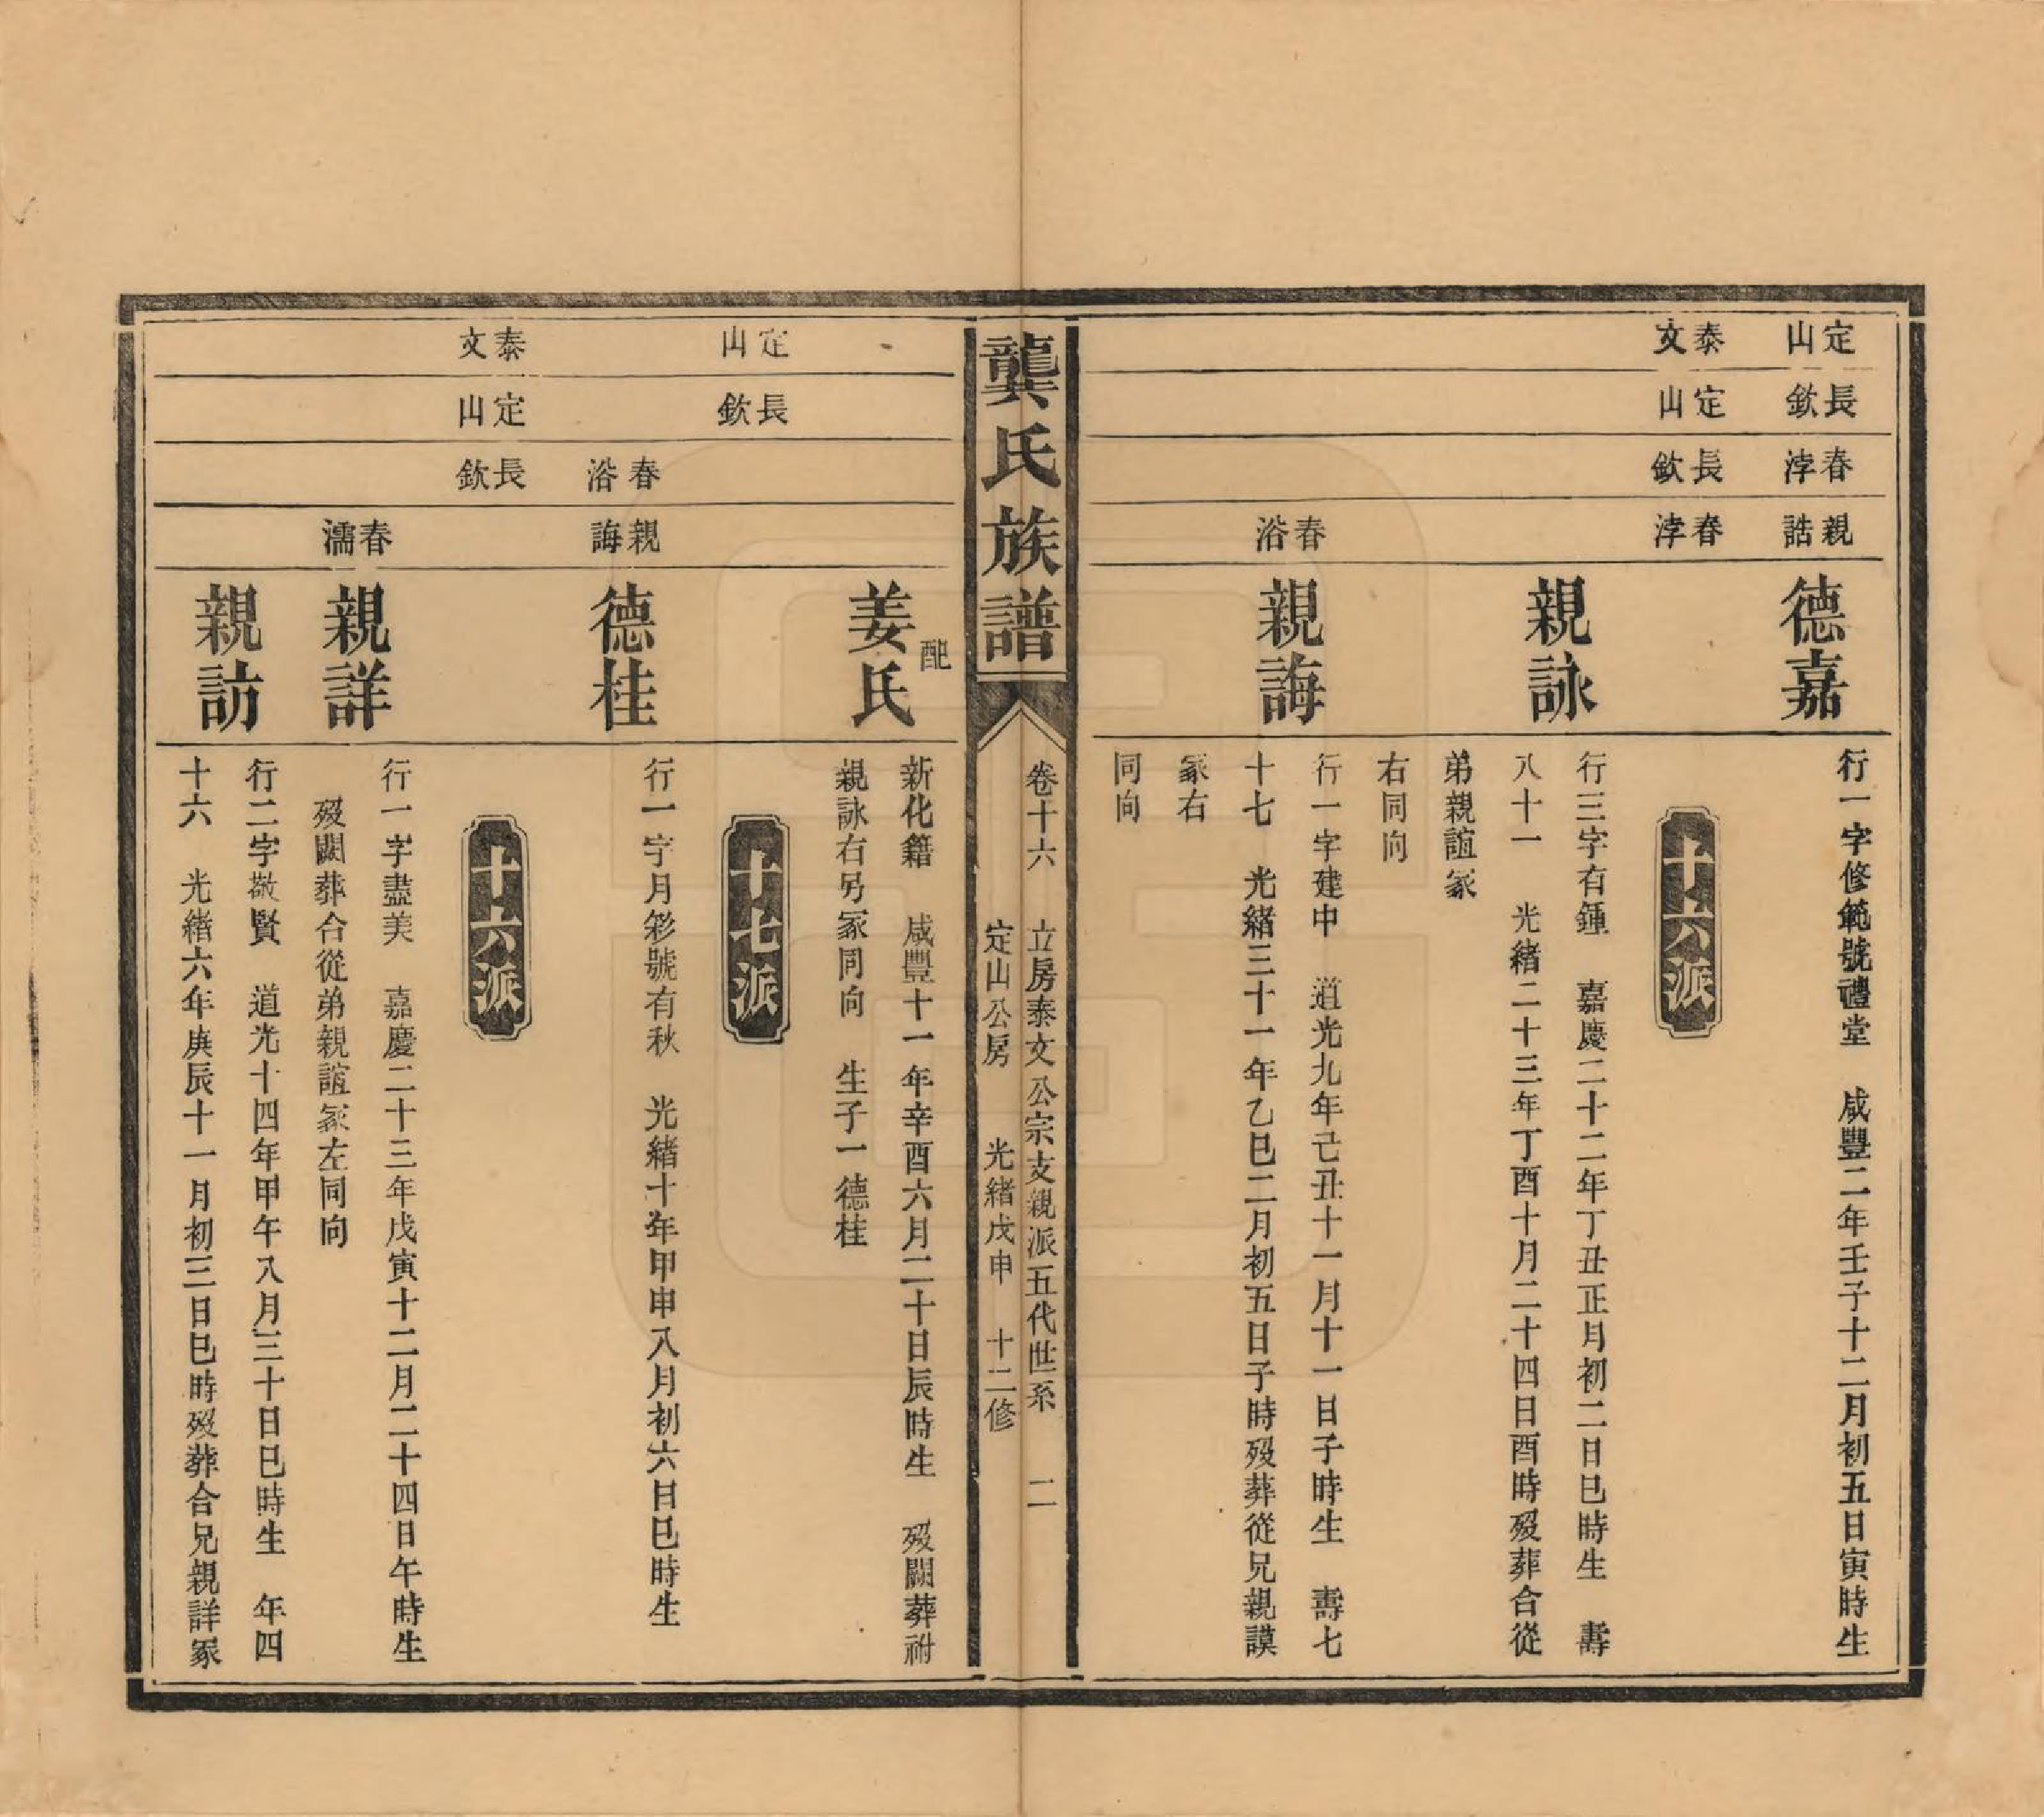 定山
長欽
春浡
親誥
德嘉
行一字修範號禮堂　咸豐二年壬子十二月初五日寅時生
十六派
泰文
定山
長欽
春浡
親詠
行三字有鍾　嘉慶二十二年丁丑正月初二日巳時生　壽
八十一　光緒二十三年丁酉十月二十四日酉時歿葬合從
弟親誼冢
右同向
春浴
親誨
行一字建中　道光九年己丑十一月十一日子時生　壽七
十七　光緒三十一年乙巳二月初五日子時歿葬從兄親謨
冢右
同向
龔氏族譜
卷十六　立房泰文公宗支親派五代世系　二
定山公房　光緒戊申　十二修
配
姜氏
新化籍　咸豐十一年辛酉六月二十日辰時生　歿闕葬祔
親詠右另冢同向　生子一德桂
十七派
定山
長欽
春浴
親誨
德桂
行一字月彩號有秋　光緒十年甲申八月初六日巳時生
十六派
泰文
定山
長欽
春濡
親詳
行一字盡美　嘉慶二十三年戊寅十二月二十四日午時生
歿闕葬合從弟親誼冢左同向
親訪
行二字敬賢　道光十四年甲午八月三十日巳時生　年四
十六　光緒六年庚辰十一月初三日巳時歿葬合兄親詳冢